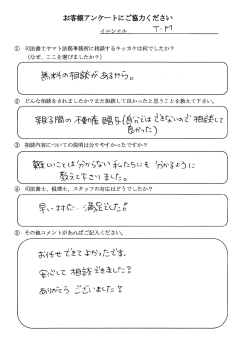 お客様アンケートにご協力ください
イニシャル T.M
① 司法書士ヤマト法務事務所に相談するキッカケは何でしたか？
（なぜ、ここを選びましたか？）
無料の相談があるから。
② どんな相談をされましたか？また相談して良かったと思うことを教えて下さい。
親子間の不動産贈与(自分ではできないので相談して
良かった)
③ 相談内容についての説明は分りやすかったですか？
難しいことは分からない私たちにも分かるように
教えて下さいました。
④ 司法書士、税理士、スタッフの対応はどうでしたか？
早い対応、満足でした。
⑤ その他コメントがあればご記入ください。
お任せできてよかったです。
安心して相談できました！
ありがとうございました！